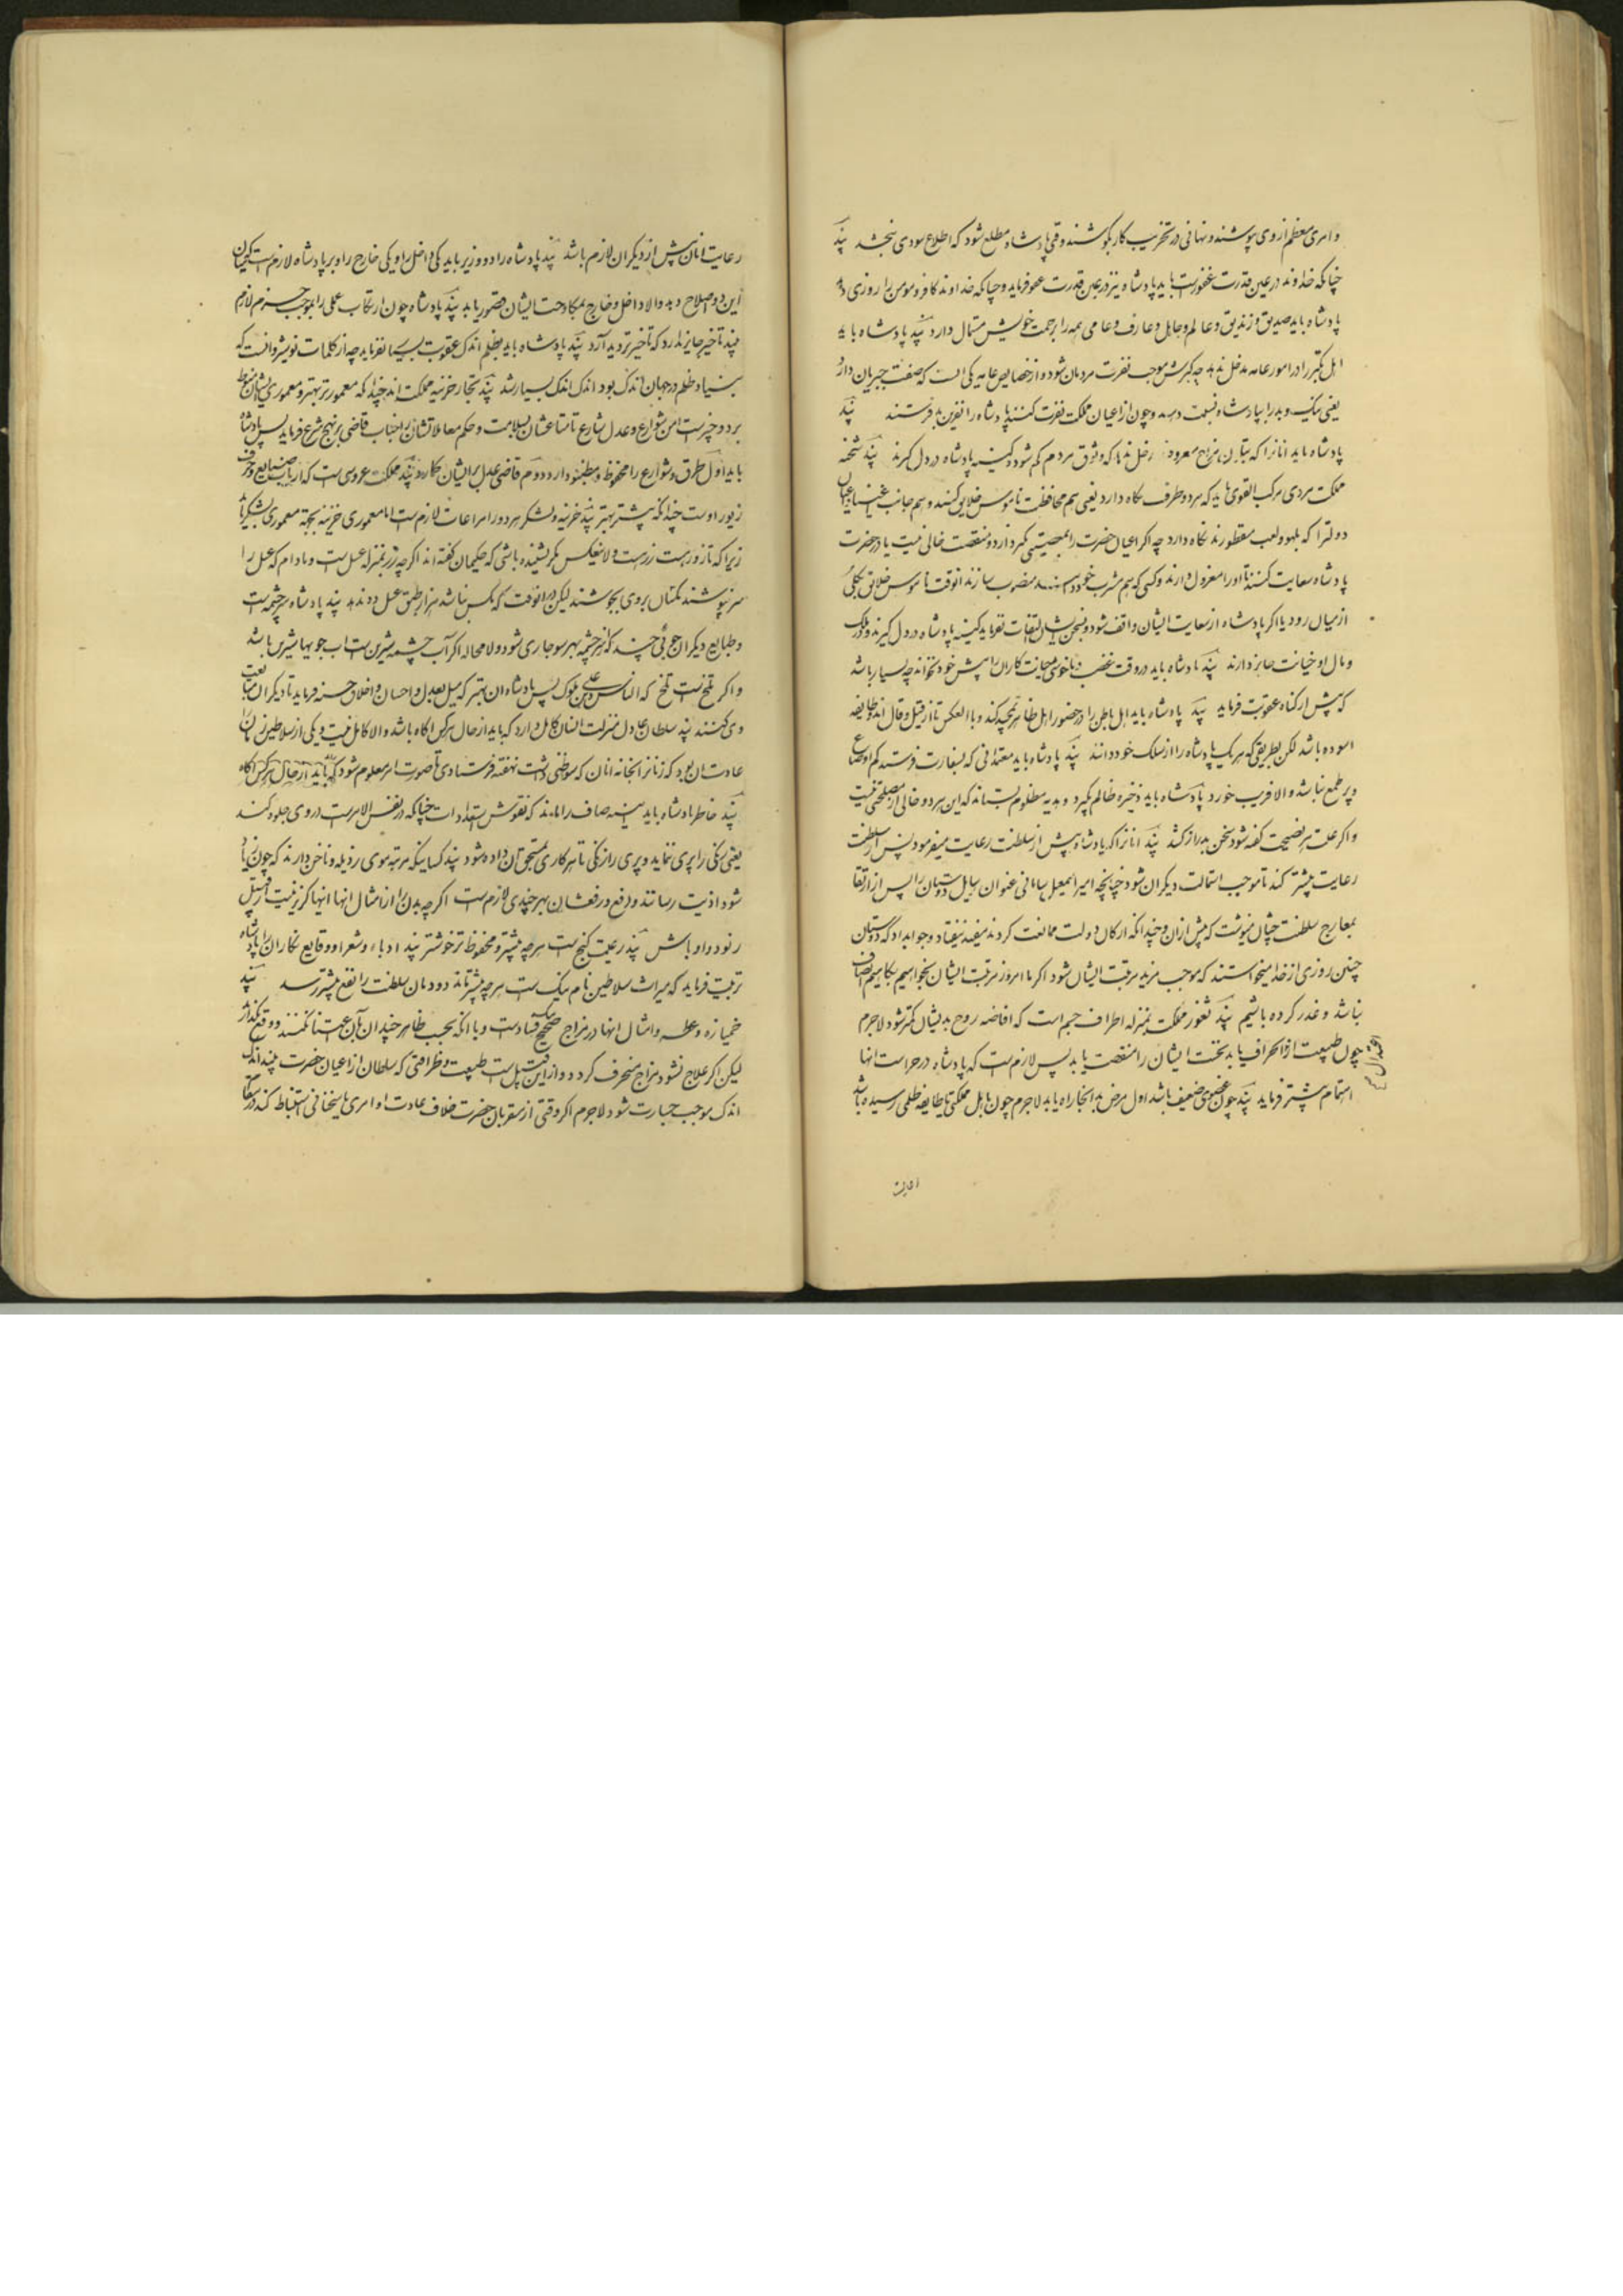 و امری معظم از وی پوشند و نهانی در تخریب کار بکوشند وقتی پادشاه مطلع شود که اطلاع سودی نبخشد پند
چنانکه خداوند در عین قدرت غفورست باید پادشاه نیز در عین قدرت عفو فرماید و چنانکه خداوند کافر و مومن را روزی دهد
پادشاه باید صدیق و زندیق و عالم و جاهل و عارف و عامی همه را برحمت خویش مستمال دارد پند پادشاه باید
اهل تکبر را در امور عامه مدخل ندهد چه کبرش موجب نفرت مردمان شود و از خصایص عامه یکی انست که صفت جبریان دارد
یعنی نیک و بد را بپادشاه نسبت دهد و چون از اعیان مملکت نفرت کنند پادشاه را نفرین بد فرستند پند
پادشاه باید انانرا که مزاح معروفند دخل ندهد که وثوق مردم کم شود و کینه پادشاه در دل گیرند پند شحنه
مملکت مردی مرکب القوی باید که هر دو طرف نگاه دارد یعنی هم محافظت ناموس خلایق کند و هم جانب اعیان
دولترا که بلهو و لعب مفطورند نگاه دارد چه اکر اعیان حضرت را بمعصیتی گیرد از دو منقصت خالی نیست یا در حضرت
پادشاه سعایت کنند تا اورا معزول دارند و کسی که هم مشرب خود دانند منصوب سازند انوقت ناموس خلایق بکلی
از میان رود یا اکر پادشاه از سعایت ایشان واقف شود و بسخن ایشان التفات نفرماید کینه پادشاه در دل گیرند و در ملک
و مال او خیانت جایز دارند پند پادشاه باید در وقت غضب و ناخوشی خیانت کاران را پیش خود نخواند چه بسیار باشد
که بیش از گناه عقوبت فرماید پند پادشاه باید اهل باطن را در حضور اهل ظاهر تمجید کند و باالعکس تا از قیل و قال ان طایفه
اسوده باشد لکن بطریقی که هر یک پادشاه را از سلک خود دانند پند پادشاه باید معتمدانی که بسفارت فرستد کم اوضاع
و پر طمع نباشد والا فریب خورد پادشاه باید ذخیره ظالم بگیرد و هدیه مظلوم بستاند که این هر دو خالی از مصلحتی نیست
و اکر علت هر نصیحت گفته شود سخن بدراز کشد پند انانرا که پادشاه پیش از سلطنت رعایت میفرمود پس از سلطنت
رعایت بیشتر کند تا موجب استمالت دیگران شود چنانچه امیر اسمعیل سامانی عنوان رسایل دوستان را پس از ارتقا
بمعارج سلطنت چنان مینوشت که پیش ازان و چندانکه ارکان دولت ممانعت کردند مفید نیفتاد و جواب داد که دوستان
چنین روزی از خدا میخواستند که موجب مزید مرتبت ایشان شود اکر ما امروز مرتبت ایشان بخواهیم بکاهیم انصاف
نباشد و غدر کرده باشیم پند ثغور مملکت بمنزله اطراف جسم است که افاضه روح بدیشان کمتر شود لاجرم
چون طبیعت از اعتدال انحراف یابد نخست ایشان را منقصت یابد پس لازمست که پادشاه در حراست انها
اهتمام بیشتر فرماید پند چون عضوی ضعیف باشد اول مرض بدانجا راه یابد لاجرم چون باهل مملکتی یا طایفه ظلمی رسیده باشد
رعایت
رعایت انان بیش از دیگران لازم باشد پند پادشاه را دو وزیر باید یکی داخل را و یکی خارج را و بر پادشاه لازمست که میان
این دو اصلاح دهد والا داخل و خارج بمکاوحت ایشان قصور یابد پند پادشاه چون ارتکاب عملی را بموجب حزم لازم
بیند تاخیر جایز ندارد که تاخیر تردید آرد پند پادشاه باید بظلم اندک عقوبت بسیار نفرماید چه از کلمات نوشیروانست که
بنیاد ظلم در جهان اندک بود اندک اندک بسیار شد پند تجار خزینه مملکت اند چندانکه معمورتر بهتر و معموری ایشان منوط
بر دو چیزست امن شوارع و عدل شارع تا متاعشان بسلامت و حکم معاملاتشان را جناب قاضی بر نهج شرع فرماید پس پادشاه
باید اول طرق و شوارع را محفوظ و مطمئن دارد دوم قاضی عدل بر ایشان گمارد پند مملکت عروسی ست که ارباب صنایع و حرف
زیور اوست چندانکه بیشتر بهتر پند خزینه و لشکر هر دو را مراعات لازمست اما معموری خزینه بجهة معموری لشکر باشد
زیرا که تا زور هست زر هست ولا ینعکس مکر نشنیده باشی که حکیمان گفته اند اگرچه زر بمنزله عسل ست و مادام که عسل را
سر نپوشند مگسان بروی بجوشند لیکن در انوقت که مگس نباشد هزار طبق عسل سود ندهد پند پادشاه سرچشمه ست
و طبایع دیگران جوئی چند که از سرچشمه بهر سو جاری شود و لامحاله اکر آب چشمه شیرین ست اب جویها شیرین باشد
و اکر تلخ ست تلخ که الناس علی دین ملوکهم پس پادشاه ان بهتر که میل بعدل و احسان و اخلاق حسنه فرماید تا دیگران متابعت
وی کنند پند سلطان عادل منزلت انسان کامل دارد که باید از حال هر کس اگاه باشد والا کامل نیست و یکی از سلاطین زمان را
عادت ان بود که زنانرا بخانه انان که سوظنی داشت نهفته فرستادی تا صورت امر معلوم شود که باید از حال هر کس اگاه
پند خاطر پادشاه باید اینه صاف را ماند که نقوش استعدادات چنانکه در نفس الامرست در وی جلوه کند
یعنی زنگی را پری ننماید و پری را زنگی تا هر کاری بمستحق ان داده شود پند کسانیکه مرتبه موی رذیله و ناخن دارند که چون زیاد
شود اذیت رسانند و دفع و رفعشان بهر چندی لازمست اگرچه بدن را از امثال انها گریز نیست از قبیل
رنود و اوباش پند رعیت گنج ست هر چه بیشتر و محفوظ تر خوشتر پند ادباء و شعرا و وقایع نگاران را پادشاه
تربیت فرماید که میراث سلاطین نام نیک ست هر چه بیشتر ماند دودمان سلطنت را نفع بیشتر رسد پند
خمیازه و عطسه و امثال انها در مزاج صحیح یک فسادست و باانکه بحسب ظاهر چندان بآن اعتنا نکنند و وقعی نگذارند
لیکن اکر علاج نشود مزاج منحرف گردد و از این قبیل ست طیبت و ظرافتی که سلطان از اعیان حضرت بپسندد اندک
اندک موجب جسارت شود لاجرم اکر وقتی از مقربان حضرت خلاف عادت اوامری یا سخنانی استنباط کند